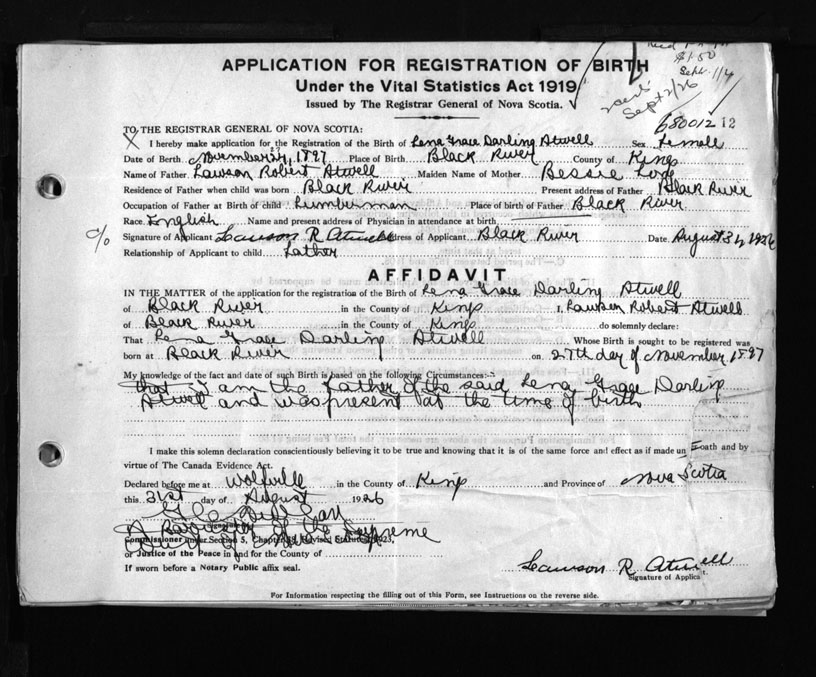 $1.50
Sept 1/4
Sept 2/26
680012 12
APPLICATION FOR REGISTRATION OF BIRTH
Under the Vital Statistics Act 1919
Issued by The Registrar General of Nova Scotia.
TO THE REGISTRAR GENERAL OF NOVA SCOTIA:
I hereby make application for the Registration of the Birth of Lena Grace Darling Atwell Sex Female
Date of Birth November 27, 1897 Place of Birth Black River County of Kings
Name of Father Lawson Robert Atwell Maiden Name of Mother Bessie Long
Residence of Father when child was born Black River Present address of Father Black River
Occupation of Father at Birth of child Lumberman Place of birth of Father Black River
Race English Name and present address of Physician in attendance at birth
% Signature of Applicant Lawson R Atwell Address of Applicant Black River Date August 31, 1926
Relationship of Applicant to child Father
AFFIDAVIT
IN THE MATTER of the application for the registration of the Birth of Lena Grace Darling Atwell
of Black River in the County of Kings I, Lawson Robert Atwell
of Black River in the County of Kings do solemnly declare:
That Lena Grace Darling Atwell Whose Birth is sought to be registered was
born at Black River on 27th day of November 1897
My knowledge of the fact and date of such Birth is based on the following Circumstances:-
that I am the father of the said Lena Grace Darling
Atwell and was present at the time of birth
I make this solemn declaration conscientiously believing it to be true and knowing that it is of the same force and effect as if made un oath and by
virtue of The Canada Evidence Act.
Declared before me at Wolfville in the County of Kings and Province of Nova Scotia
this 31st day of August 1926
A Barrister of the Supreme
Commissioner under Section 5, Chapter Revised Statutes 1923,
or Justice of the Peace in and for the County of
If sworn before a Notary Public affix seal.
Lawson R Atwell
Signature of Applicant
For Information respecting the filling out of this Form, see Instructions on the reverse side.